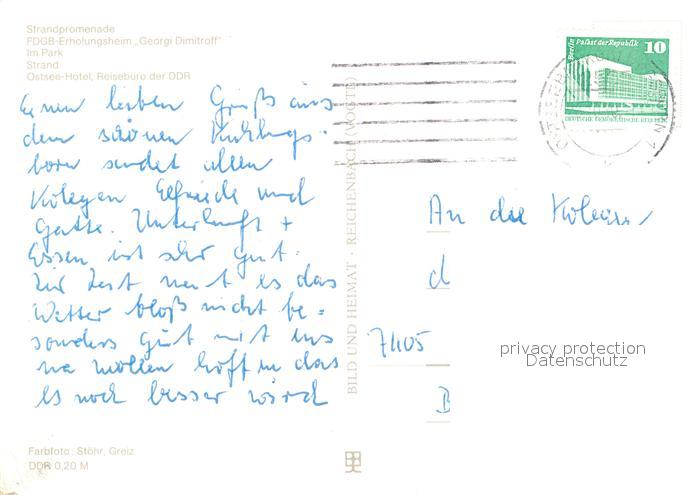 Strandpromenade
FDGB-Erholungsheim „Georgi Dimitroff"
Im Park
Strand
Ostsee-Hotel, Reisebüro der DDR
Einen lieben Gruß aus
dem schönen Kühlungs-
born sendet allen
Kolegen Elfriede und
Gatte. Unterkunft +
Essen ist sehr gut.
Zur Zeit meint es das
Wetter bloß nicht be=
sonders gut mit uns
na wollen hoffen das
es noch besser wird
Farbfoto: Stöhr, Greiz
DDR 0,20 M
BILD UND HEIMAT · REICHENBACH (VOGTL)
Berlin Palast der Republik 10
DEUTSCHE DEMOKRATISCHE REPUBLIK
An die Kolegen
d
7405
B
privacy protection
Datenschutz